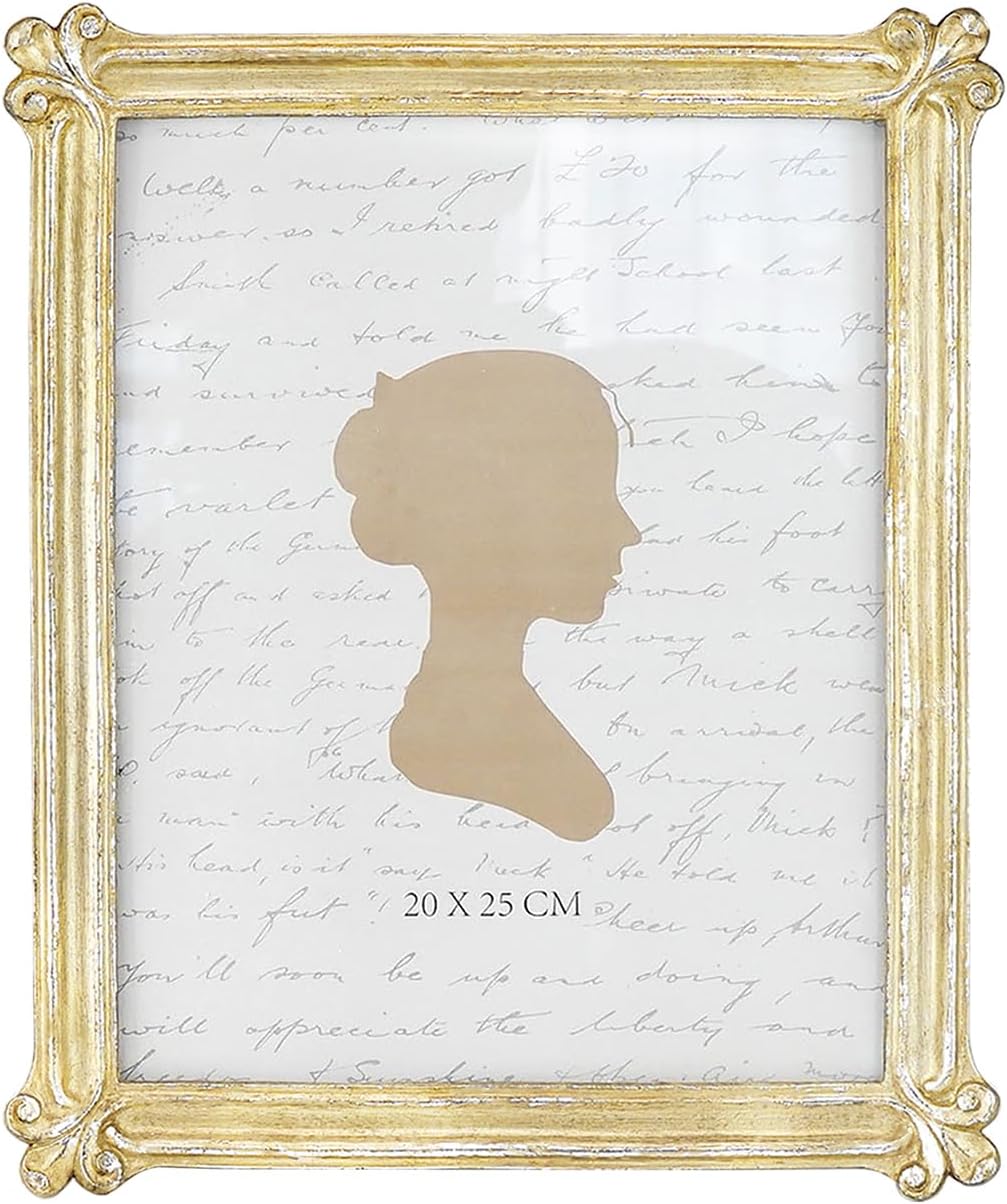 so much per cent.
Well, a number got £20 for the
answer, so I retired badly wounded
Smith called at night School last
Friday and told me he had seen you
and survived asked him to
remember I hope
the varlet you heard the
story of the had his foot
shot off and asked private to carry
him to the rear the way a shell
off the but Mick was
ignorant of On arrival, the
said, What bringing in
a man" with his head off, Mick
His head, is it" say Mick "He told me it
was his fut" !
20 X 25 CM
Cheer up, Arthur
You'll soon be up and doing, and
will appreciate the liberty and
freedom & Sunshine &